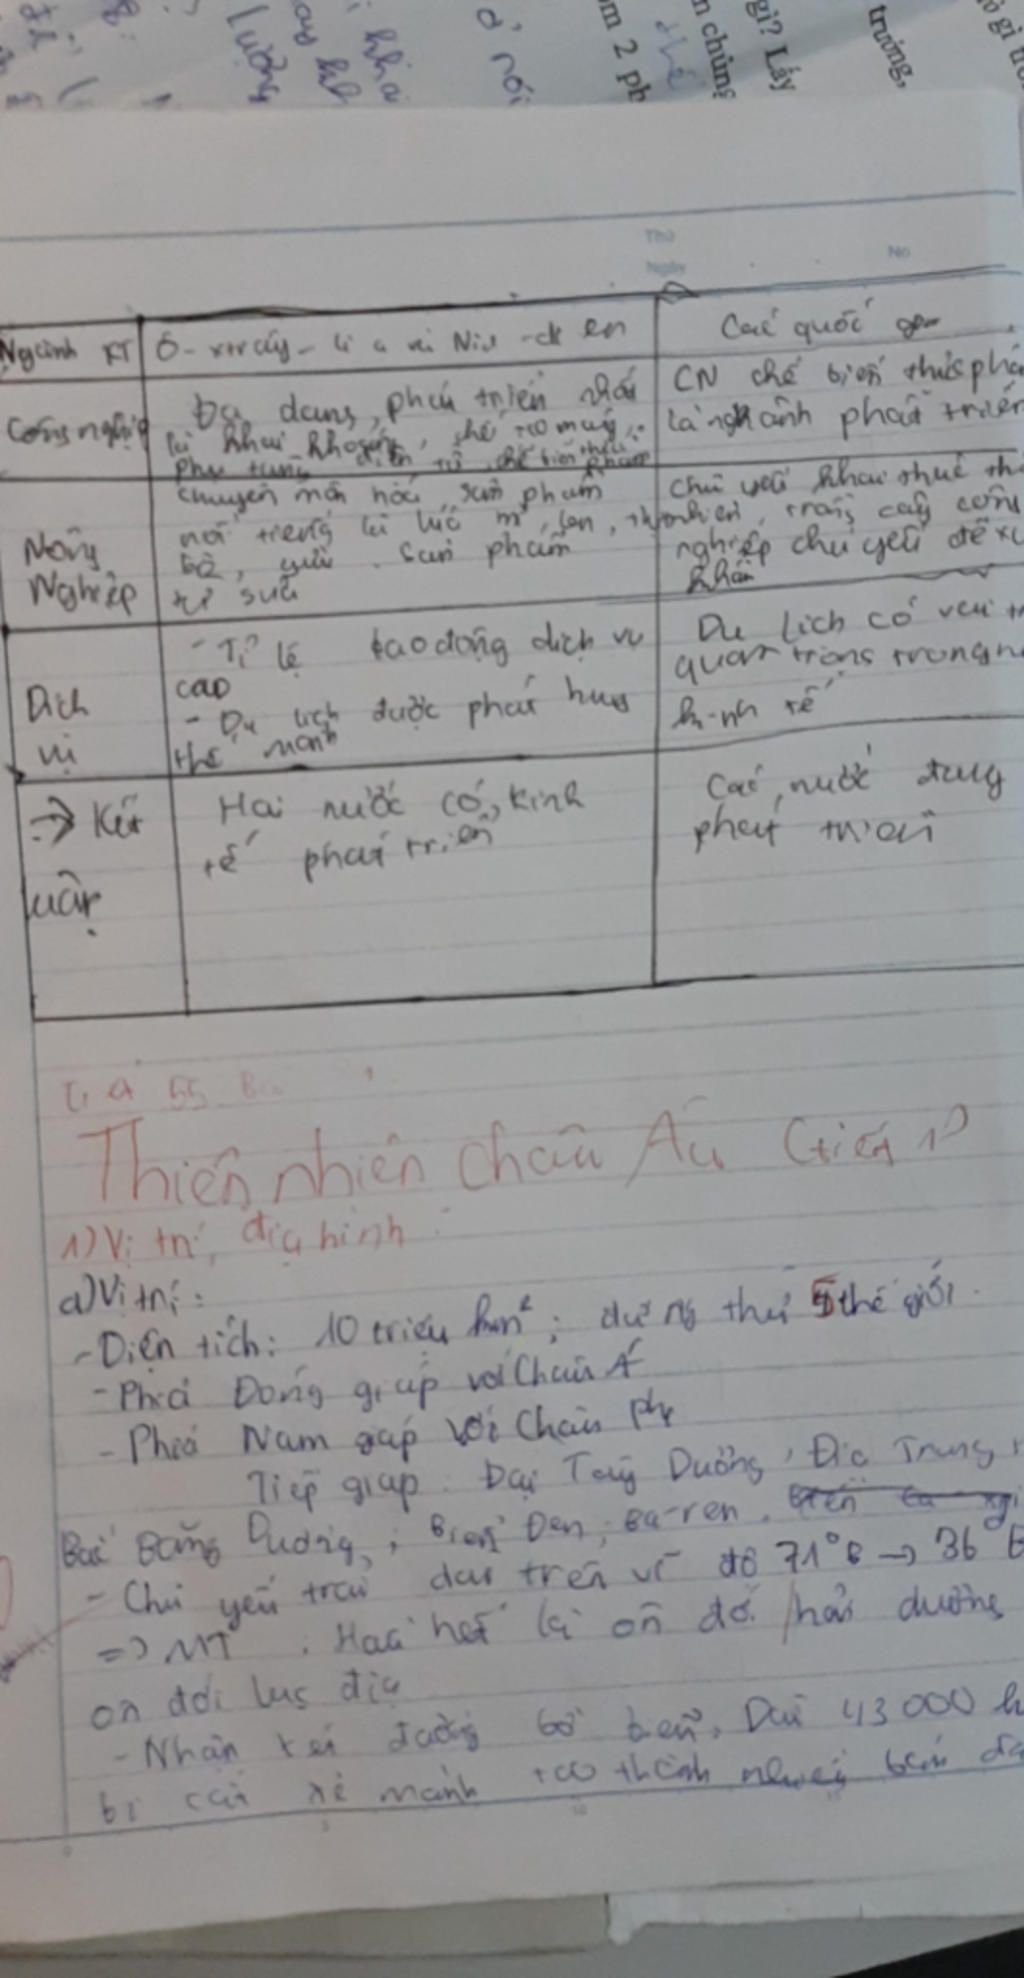 nói
m 2 ph
n chủng
gì? Lấy
trường,
Thứ
Ngày
No
Ngành KT
Ô-xtrây-li a và Niu-di len
Các quốc
Công nghiệp
Đa dạng, phát triển nhất
là khai khoáng, chế tạo máy,
phụ tùng điện tử, chế biến thực phẩm
CN chế biến thực phẩ
là nghành phát triển
Nông
Nghiệp
chuyên môn hóa, sản phẩm
nổi tiếng là lúa mì, len, thịt
bò, cừu. Sản phẩm
từ sữa
chủ yếu khai thác th
nhiên, trồng cây côn
nghiệp chủ yếu để xu
khẩu
Dịch
vụ
- Tỉ lệ lao động dịch vụ
cao
- Du lịch được phát huy
thế mạnh
Du lịch có vai tr
quan trọng trong n
kinh tế
=> Kết
luận
Hai nước có kinh
tế phát triển
Các nước đang
phát triển
55
Thiên nhiên châu Âu (tiết 1)
1) Vị trí, địa hình
a) Vị trí:
- Diện tích: 10 triệu km²; đứng thứ 5 thế giới.
- Phía Đông giáp với Châu Á
- Phía Nam giáp với Châu Phi
Tiếp giáp: Đại Tây Dương, Địa Trung
Bắc Băng Dương, ; Biển Đen; Ba-ren.
- Chủ yếu trải dài trên vĩ độ 71°B -> 36°B
=> MT. Hầu hết là ôn đới hải dương
ôn đới lục địa
- Nhận xét đường bờ biển. Dài 43000 k
bị cắt xẻ mạnh tạo thành nhiều bán đả